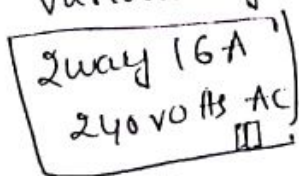 2way 16A
240 volts AC